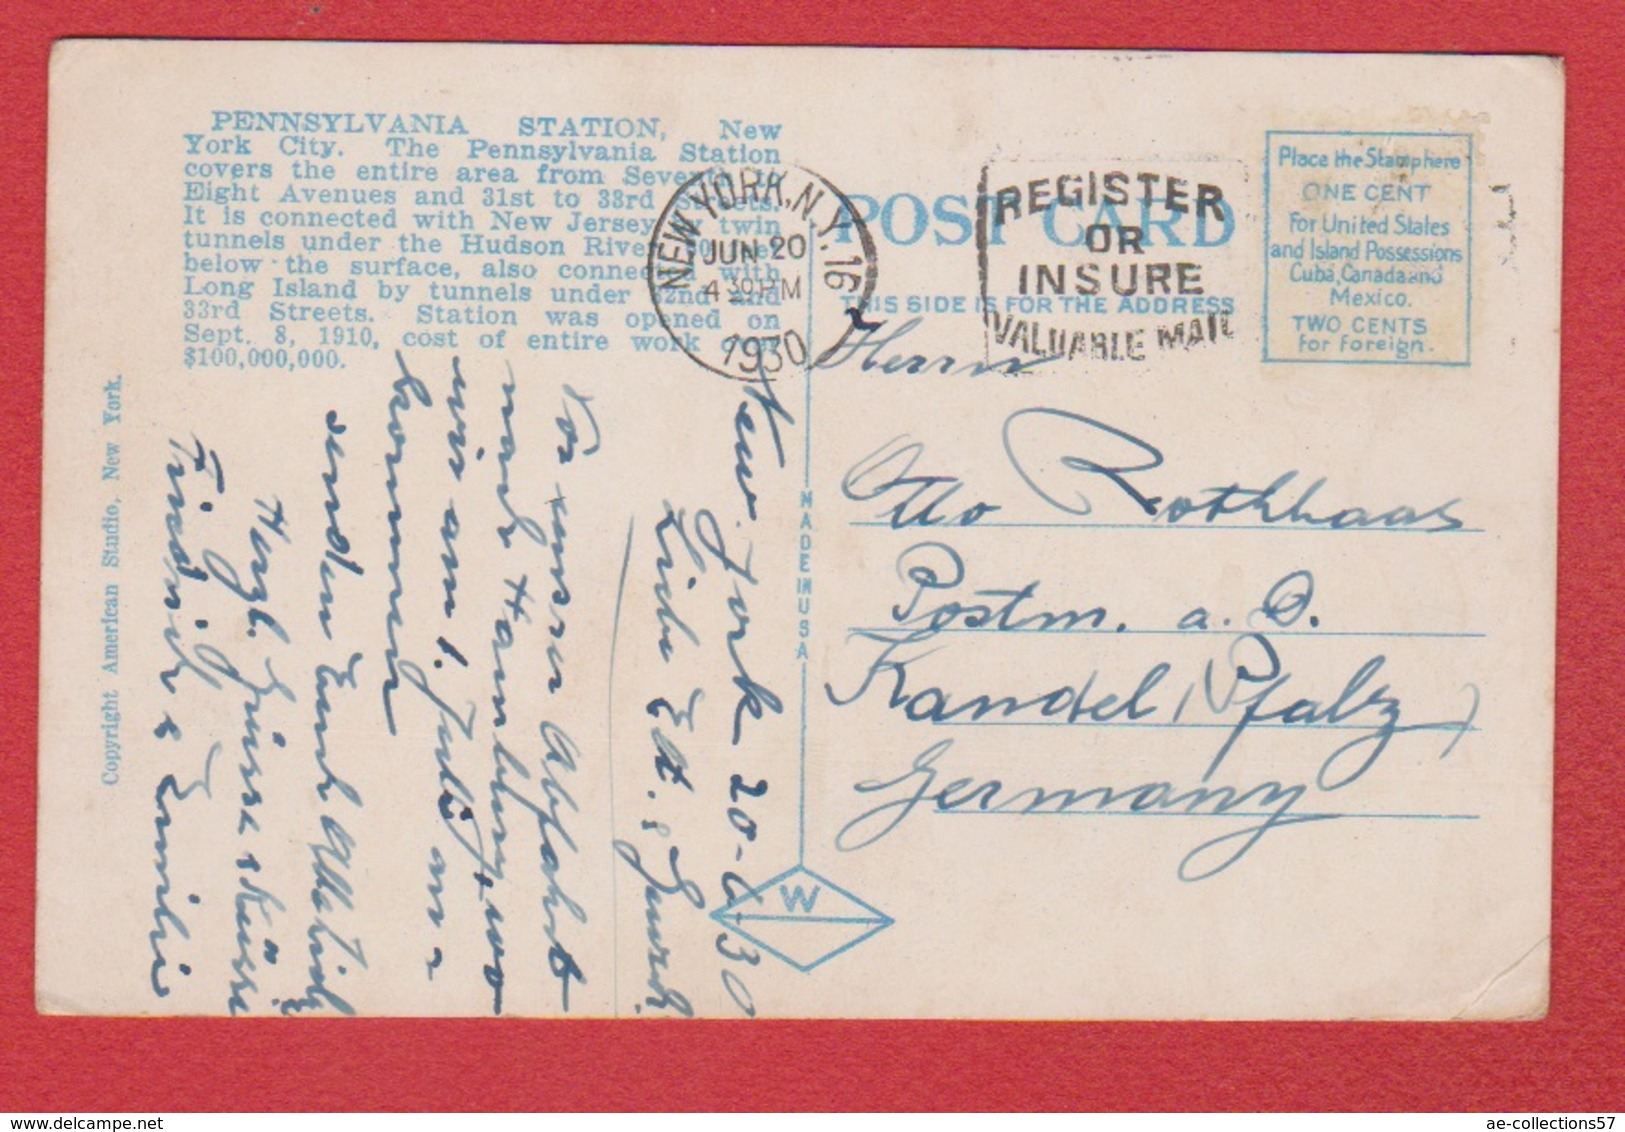 PENNSYLVANIA STATION, New
York City. The Pennsylvania Station
covers the entire area from Seventh to
Eight Avenues and 31st to 33rd Streets.
It is connected with New Jersey by twin
tunnels under the Hudson River, feet
below the surface, also connected with
Long Island by tunnels under 32nd and
33rd Streets. Station was opened on
Sept. 8, 1910, cost of entire work over
$100,000,000.
Copyright American Studio, New York.
NEW YORK, N.Y. 16
JUN 20
4 30 PM
1930
POST CARD
THIS SIDE IS FOR THE ADDRESS
REGISTER
OR
INSURE
VALUABLE MAIL
Place the Stamp here
ONE CENT
For United States
and Island Possessions
Cuba, Canada and
Mexico.
TWO CENTS
for Foreign.
MADE IN USA
W
New York 20-6.30
Liebe
Vor unserer Abfahrt
nach Hamburg, wo
wir am 1. Juli an-
kommen
senden Euch
Herzl. Grüsse & Küsse
Friedrich & Emilie
Herrn
Otto Rothhaas
Postm. a. D.
Kandel (Pfalz)
Germany
ae-collections57
www.delcampe.net